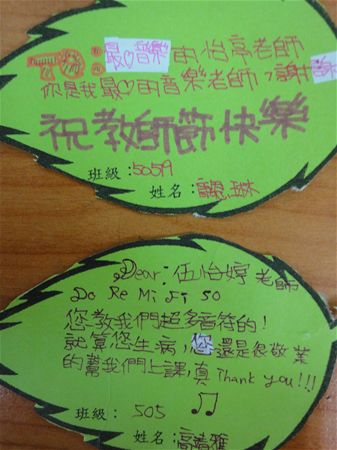 最♡音樂的怡亭老師
你是我最♡的音樂老師,謝謝
祝教師節快樂
班級:505
姓名:
Dear:伍怡婷老師
Do Re Mi Fi So
您教我們超多音符的!
就算您生病,您還是很敬業
的幫我們上課,真Thank you!!!
班級: 505
姓名:高靖雅